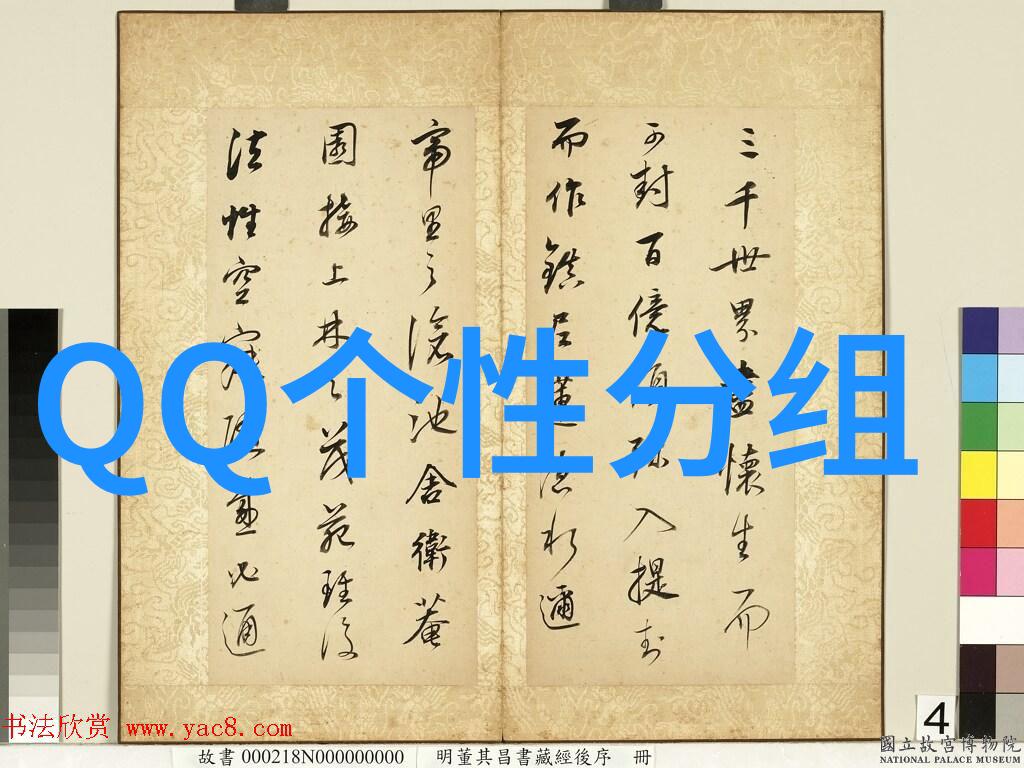 三千世界盡懷生而
可封百億須弥入提封
而作鎮是
彌
帝里之滄池舍衛菴
園接上林之茂苑
法性空
通
QQ个性分组
书法欣赏 www.yac8.com
故書 000218N000000000 明董其昌書藏經後序 冊
4
國立故宮博物院
NATIONAL PALACE MUSEUM